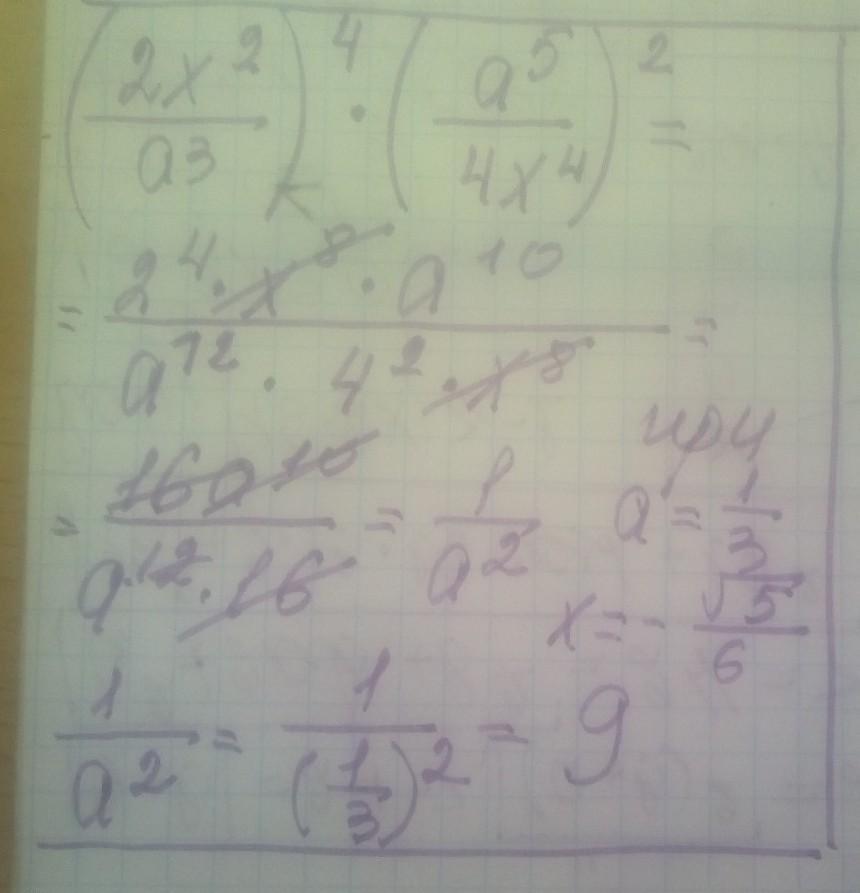 (2x²/a3)⁴ · (a⁵/4x⁴)² =
= 2⁴ · x⁸ · a¹⁰ / a¹² · 4² · x⁸ =
= 16a10 / a¹² · 16 = 1/a²
при
a = 1/3
x = - √5/6
1/a² = 1/(1/3)² = 9